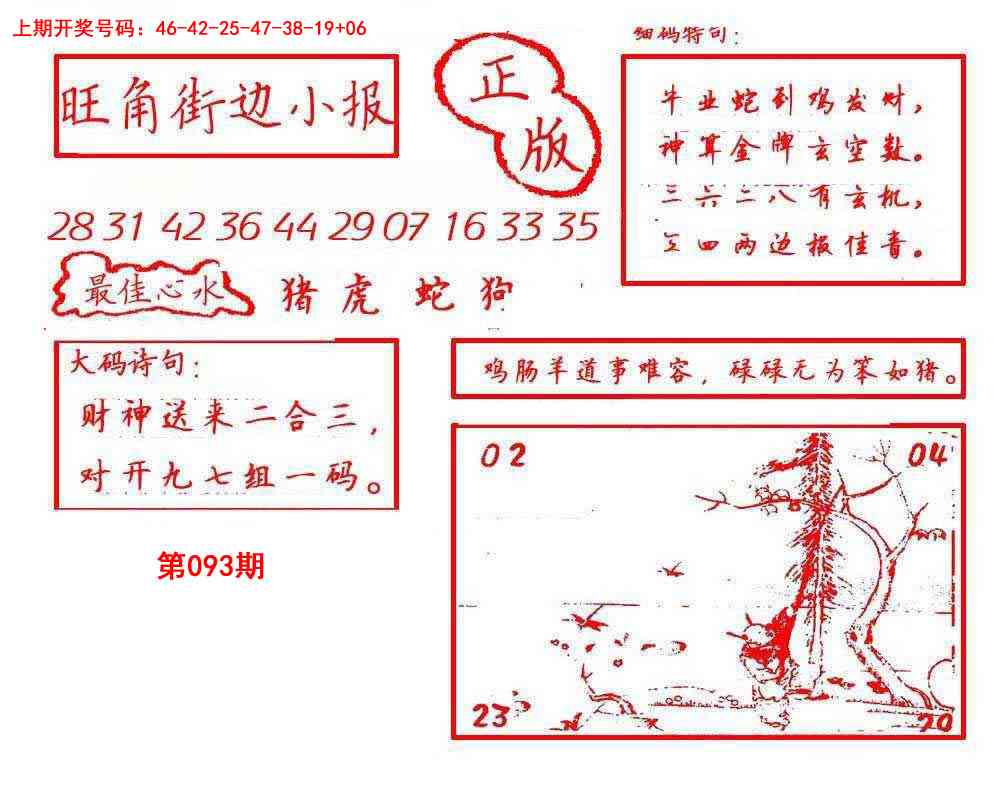 上期开奖号码：46-42-25-47-38-19+06
细码特句：
旺角街边小报
正版
牛业蛇到鸡发财，
神算金牌玄空数。
三六二八有玄机，
五四两边报佳音。
28 31 42 36 44 29 07 16 33 35
最佳心水
猪虎蛇狗
大码诗句：
财神送来二合三，
对开九七组一码。
鸡肠羊道事难容，碌碌无为笨如猪。
02
04
23
20
第093期